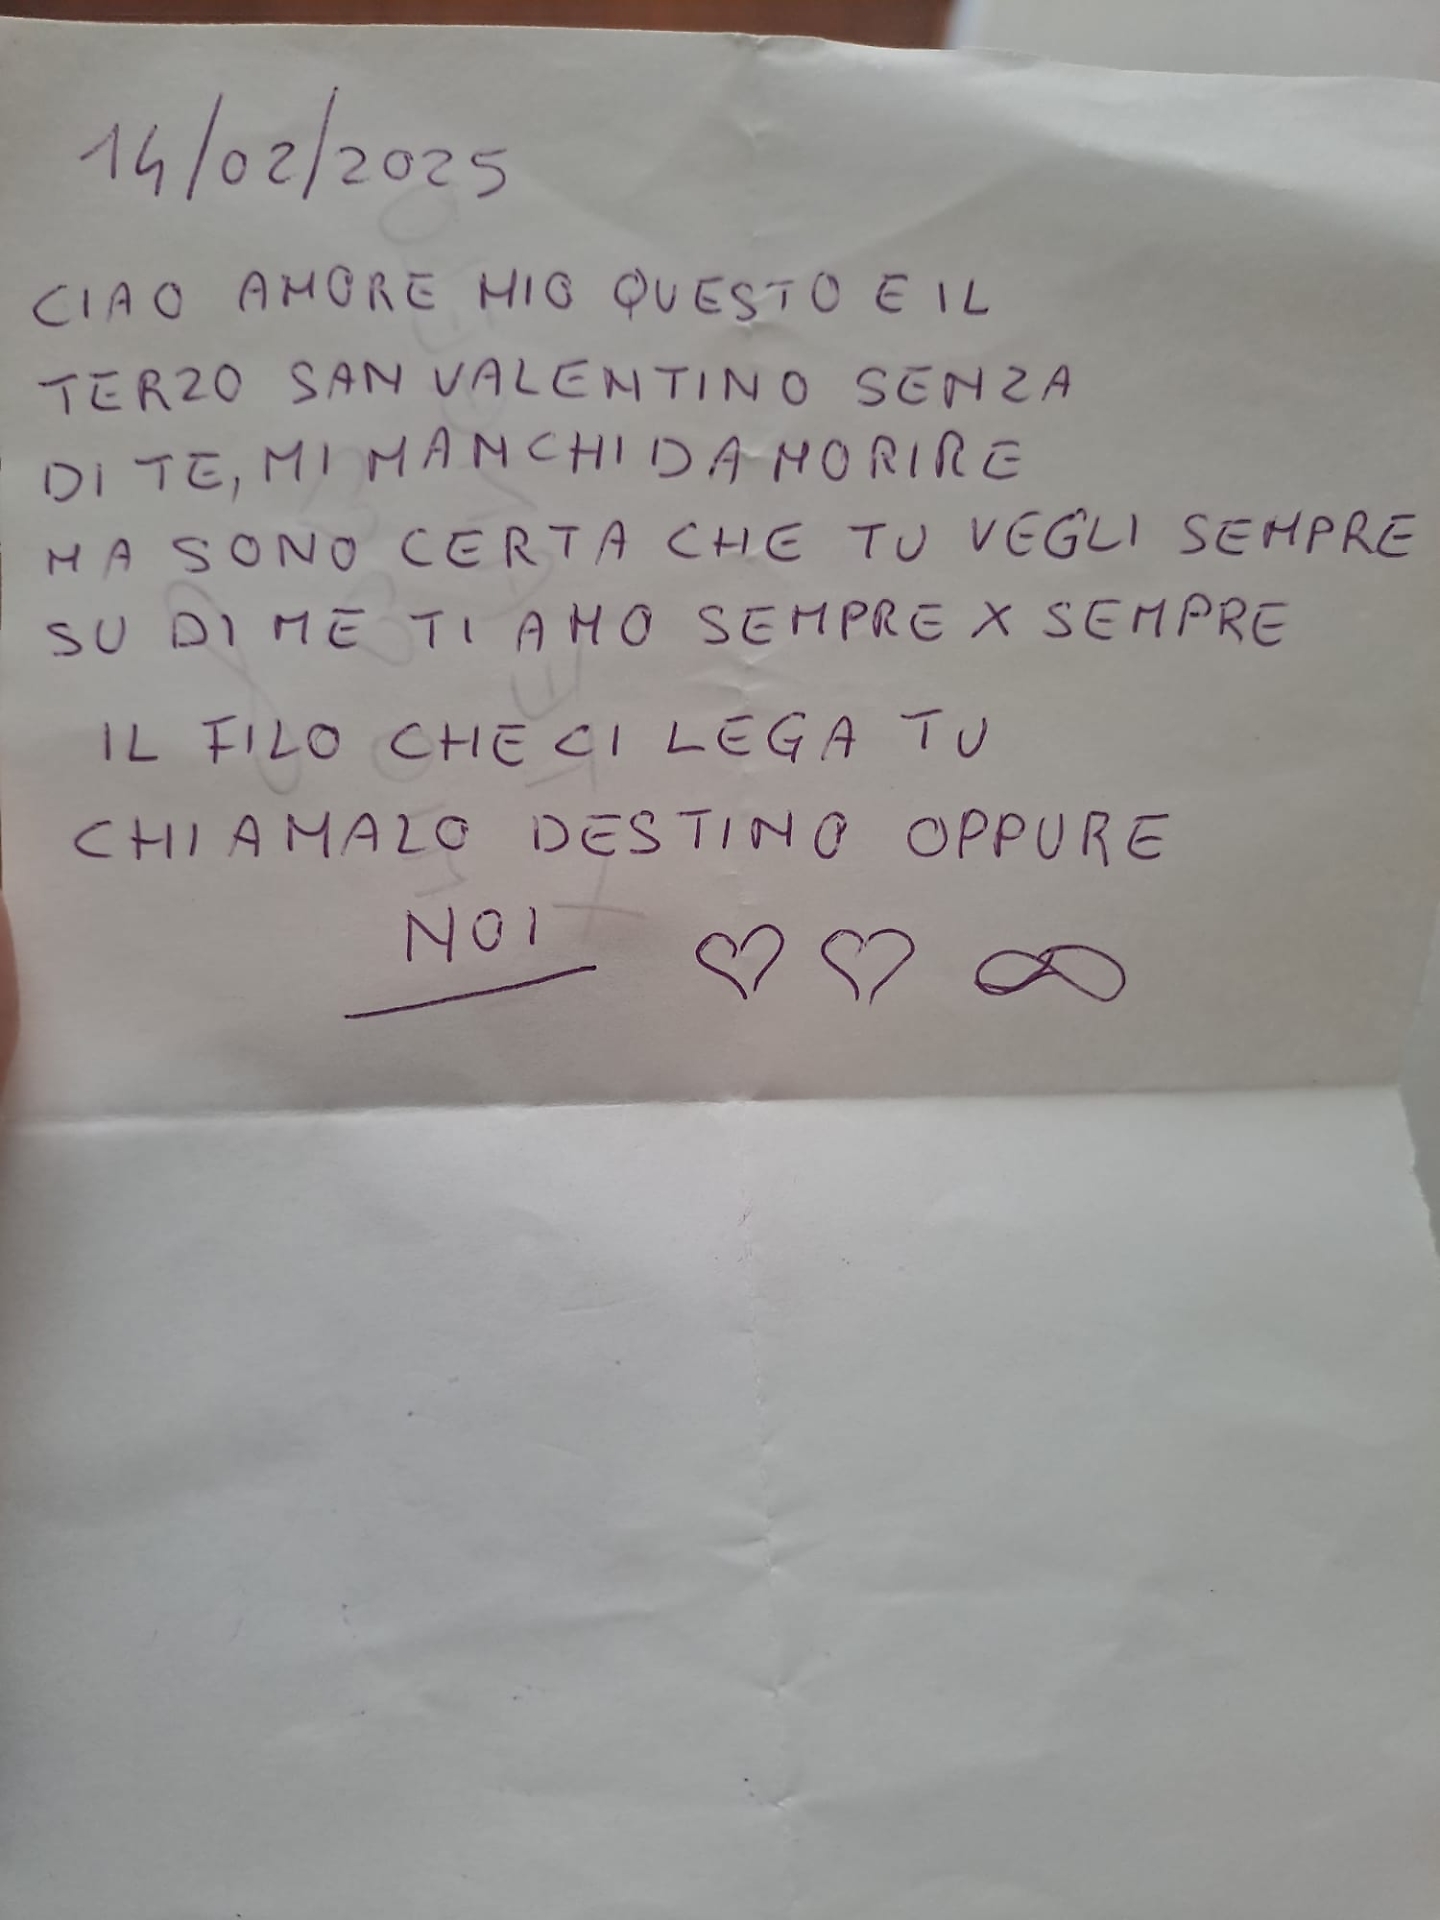 14/02/2025
CIAO AMORE MIO QUESTO E IL
TERZO SAN VALENTINO SENZA
DI TE, MI MANCHI DA MORIRE
MA SONO CERTA CHE TU VEGLI SEMPRE
SU DI ME TI AMO SEMPRE X SEMPRE
IL FILO CHE CI LEGA TU
CHIAMALO DESTINO OPPURE
NOI ♡ ♡ ∞